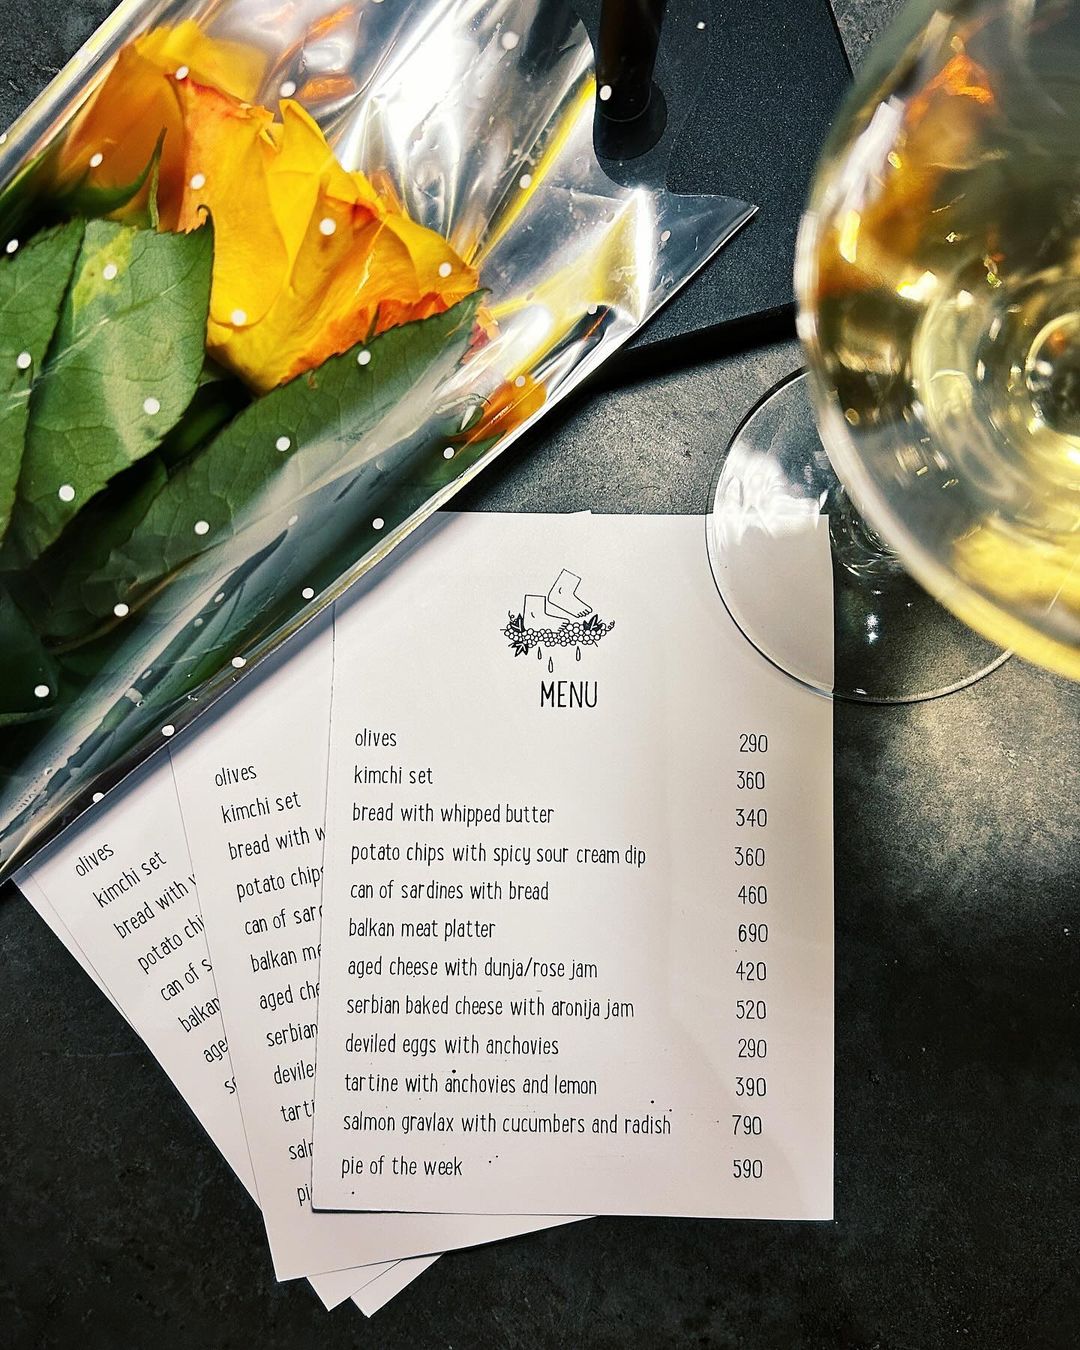 MENU
olives 290
kimchi set 360
bread with whipped butter 340
potato chips with spicy sour cream dip 360
can of sardines with bread 460
balkan meat platter 690
aged cheese with dunja/rose jam 420
serbian baked cheese with aronija jam 520
deviled eggs with anchovies 290
tartine with anchovies and lemon 390
salmon gravlax with cucumbers and radish 790
pie of the week 590
olives
kimchi set
bread with w
potato chips
can of sar
balkan me
aged che
serbian
devile
tarti
saln
pi
olives
kimchi set
bread with
potato chi
can of s
balkan
age
se